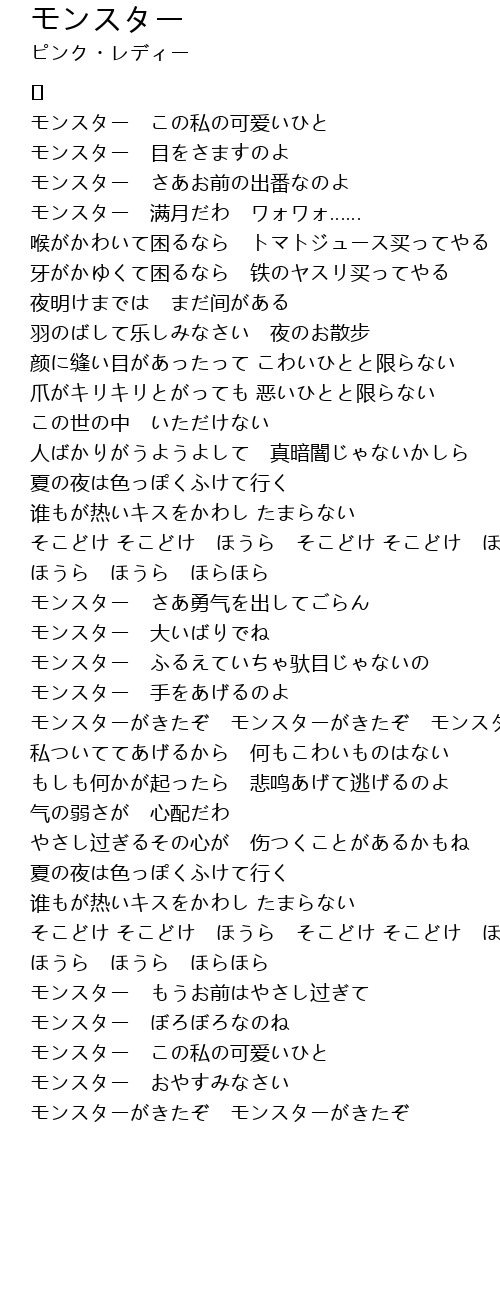 モンスター
ピンク・レディー
モンスター　この私の可爱いひと
モンスター　目をさますのよ
モンスター　さあお前の出番なのよ
モンスター　满月だわ　ワォワォ……
喉がかわいて困るなら　トマトジュース买ってやる
牙がかゆくて困るなら　铁のヤスリ买ってやる
夜明けまでは　まだ间がある
羽のばして乐しみなさい　夜のお散步
颜に缝い目があったって こわいひとと限らない
爪がキリキリとがっても 恶いひとと限らない
この世の中　いただけない
人ばかりがうようよして　真暗闇じゃないかしら
夏の夜は色っぽくふけて行く
谁もが热いキスをかわし たまらない
そこどけ そこどけ　ほうら　そこどけ そこどけ　ほ
ほうら　ほうら　ほらほら
モンスター　さあ勇气を出してごらん
モンスター　大いばりでね
モンスター　ふるえていちゃ驮目じゃないの
モンスター　手をあげるのよ
モンスターがきたぞ　モンスターがきたぞ　モンスタ
私ついててあげるから　何もこわいものはない
もしも何かが起ったら　悲鸣あげて逃げるのよ
气の弱さが　心配だわ
やさし过ぎるその心が　伤つくことがあるかもね
夏の夜は色っぽくふけて行く
谁もが热いキスをかわし たまらない
そこどけ そこどけ　ほうら　そこどけ そこどけ　ほ
ほうら　ほうら　ほらほら
モンスター　もうお前はやさし过ぎて
モンスター　ぼろぼろなのね
モンスター　この私の可爱いひと
モンスター　おやすみなさい
モンスターがきたぞ　モンスターがきたぞ